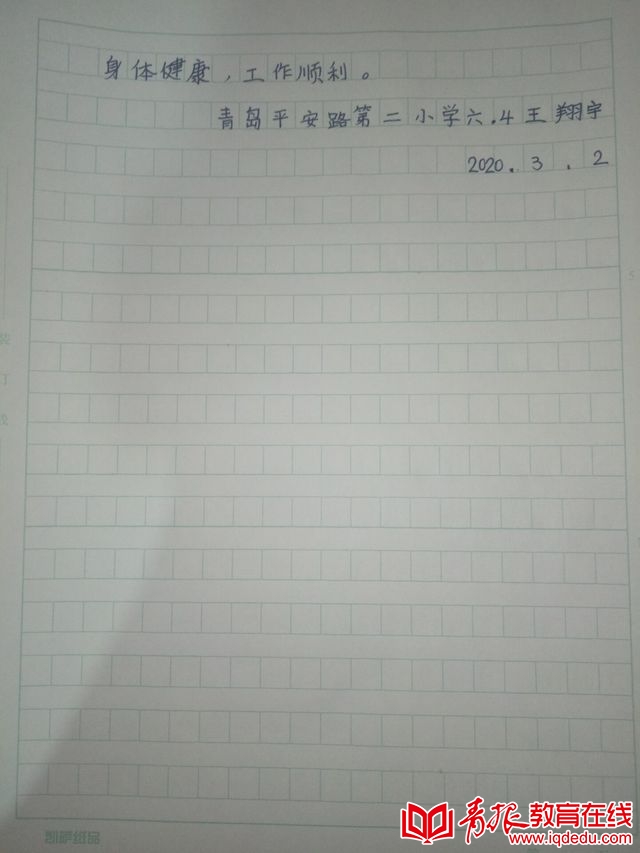 身体健康，工作顺利。
青岛平安路第二小学六.4王翔宇
2020.3.2
装
订
凯萨纸品
青报教育在线
www.iqdedu.com